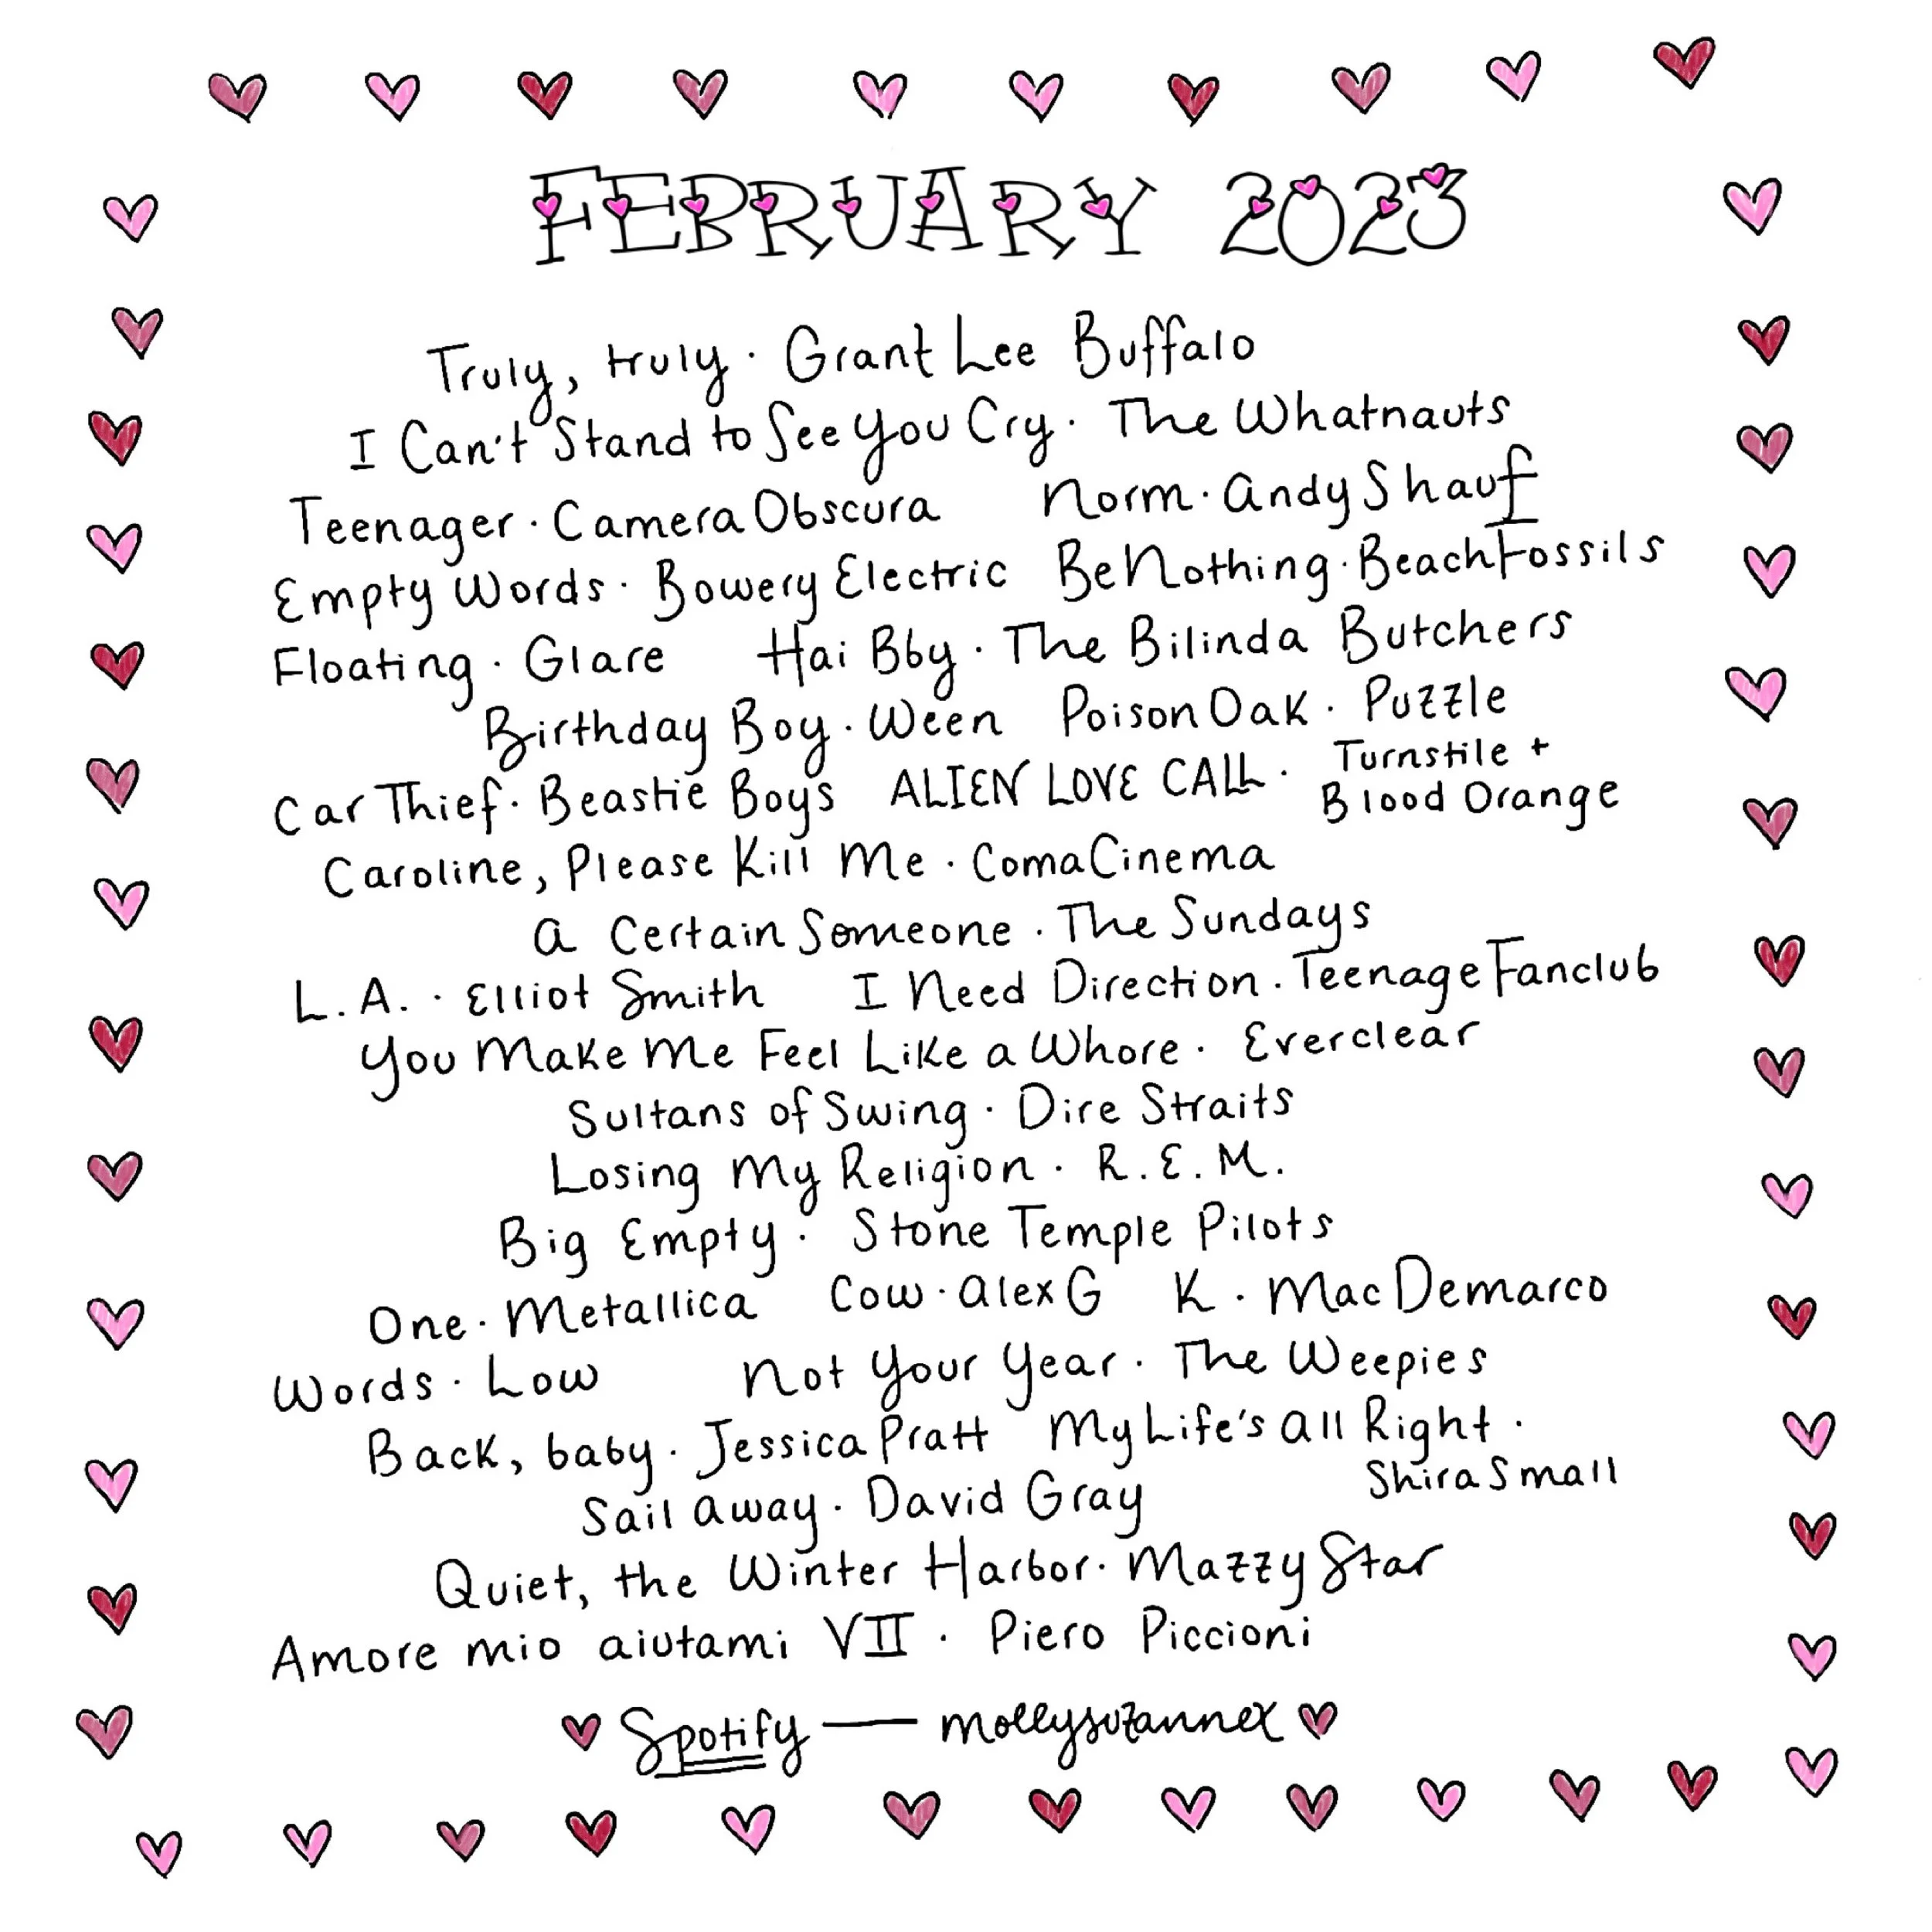 FEBRUARY 2023
Truly, truly · Grant Lee Buffalo
I Can't Stand to See You Cry · The Whatnauts
Teenager · Camera Obscura Norm · Andy Shauf
Empty Words · Bowery Electric Be Nothing · Beach Fossils
Floating · Glare Hai Bby · The Bilinda Butchers
Birthday Boy · Ween Poison Oak · Puzzle
Car Thief · Beastie Boys ALIEN LOVE CALL · Turnstile +
Blood Orange
Caroline, Please Kill Me · Coma Cinema
A Certain Someone · The Sundays
L.A. · Elliot Smith I Need Direction · Teenage Fanclub
You Make Me Feel Like a Whore · Everclear
Sultans of Swing · Dire Straits
Losing My Religion · R.E.M.
Big Empty · Stone Temple Pilots
One · Metallica Cow · Alex G K · Mac Demarco
Words · Low Not Your Year · The Weepies
Back, baby · Jessica Pratt My Life's All Right ·
Shira Small
Sail Away · David Gray
Quiet, the Winter Harbor · Mazzy Star
Amore mio aiutami VII · Piero Piccioni
Spotify — mollysuzannex